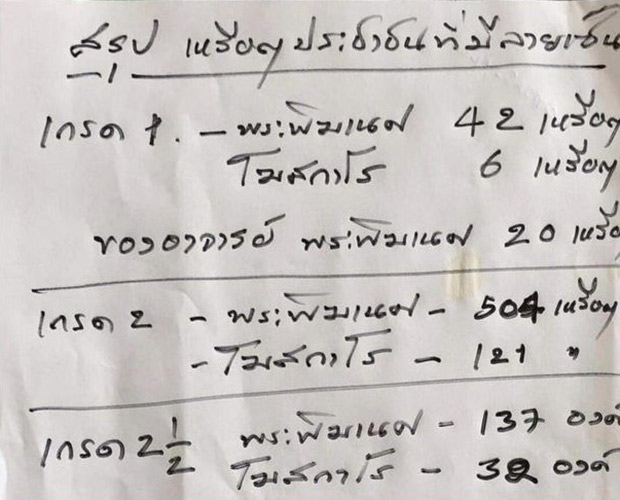 สรุป เหรียญประชาชนที่มีลายเซ็น
เกรด 1. - พระพิฆเนศ 42 เหรียญ
โมสกาโร 6 เหรียญ
ของอาจารย์ พระพิฆเนศ 20 เหรีย
เกรด 2 - พระพิฆเนศ - 504 เหรียญ
- โมสกาโร - 121 "
เกรด 2 1/2 พระพิฆเนศ - 137 องค์
โมสกาโร - 32 องค์